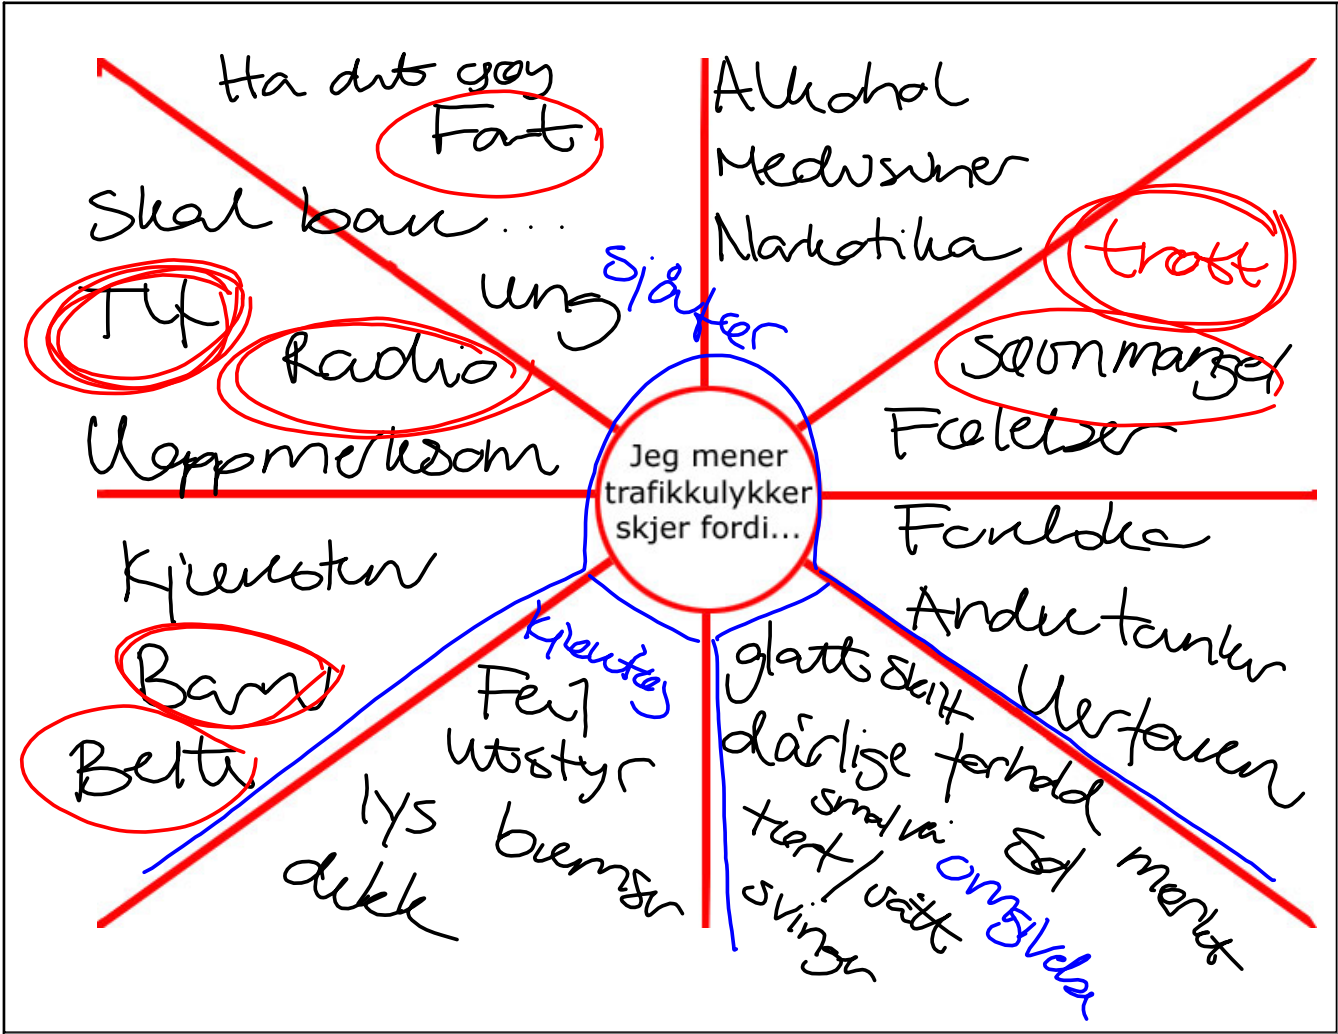 Ha det gøy
Fart
Skal bare ...
Ung
Tlf
Radio
Uoppmerksom
Alkohol
Medisiner
Narkotika
trøtt
Søvnmangel
Følelser
sjåfør
Jeg mener
trafikkulykker
skjer fordi...
Forelska
Andre tanker
Uerfaren
Kjæresten
Barn
Belte
kjøretøy
Feil
utstyr
lys
bremser
dekk
glatt
skilt
dårlige forhold
smal vei
tørt/vått
svinger
Sol
mørkt
omgivelse